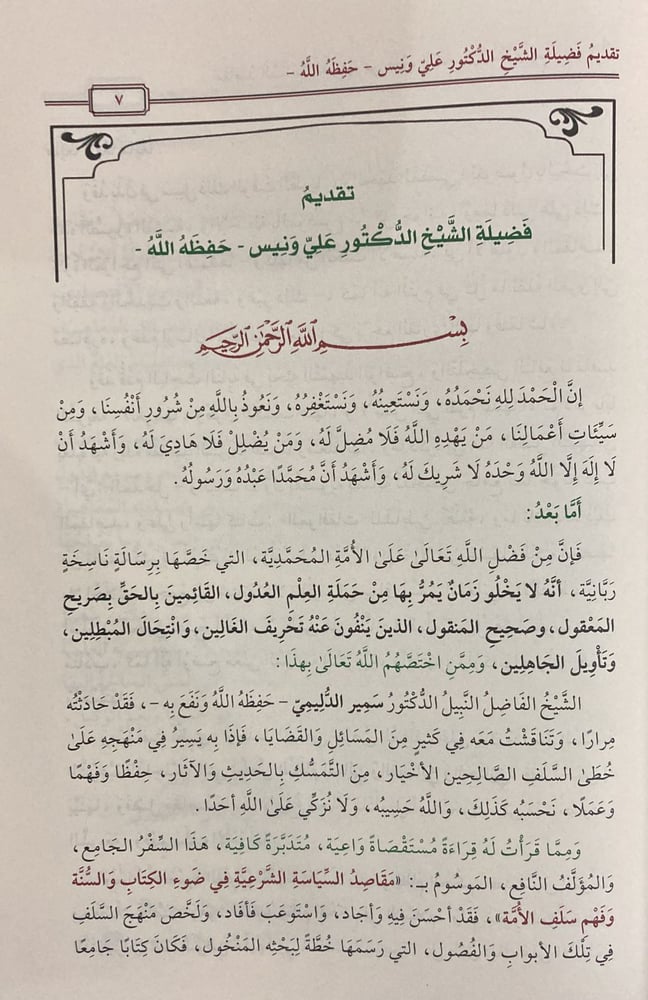 تقديمُ فَضِيلَةِ الشَّيْخِ الدُّكْتُورِ عَلِيّ وَنِيس - حَفِظَهُ اللَّهُ -
٧
تقديمُ
فَضِيلَةِ الشَّيْخِ الدُّكْتُورِ عَلِيّ وَنِيس - حَفِظَهُ اللَّهُ -
بِسْمِ اللَّهِ الرَّحْمَٰنِ الرَّحِيمِ
إنَّ الْحَمْدَ لِلهِ نَحْمَدُهُ، وَنَسْتَعِينُهُ، وَنَسْتَغْفِرُهُ، وَنَعُوذُ بِاللَّهِ مِنْ شُرُورِ أَنْفُسِنَا، وَمِنْ
سَيِّئَاتِ أَعْمَالِنَا، مَنْ يَهْدِهِ اللَّهُ فَلَا مُضِلَّ لَهُ، وَمَنْ يُضْلِلْ فَلَا هَادِيَ لَهُ، وَأَشْهَدُ أَنْ
لَا إِلَهَ إِلَّا اللَّهُ وَحْدَهُ لَا شَرِيكَ لَهُ، وَأَشْهَدُ أَنَّ مُحَمَّدًا عَبْدُهُ وَرَسُولُهُ.
أَمَّا بَعْدُ:
فَإِنَّ مِنْ فَضْلِ اللَّهِ تَعَالَىٰ عَلَىٰ الأُمَّةِ المُحَمَّدِيَّة، التي خَصَّهَا بِرِسَالَةٍ نَاسِخَةٍ
رَبَّانِيَّة، أنَّهُ لا يَخْلُو زَمَانٌ يَمُرُّ بِهَا مِنْ حَمَلَةِ العِلْمِ العُدُول، القَائِمِينَ بِالحَقِّ بِصَرِيحِ
المَعْقُول، وصَحِيحِ المَنقُول، الذينَ يَنْفُونَ عَنْهُ تَحْرِيفَ الغَالِين، وَانْتِحَالَ المُبْطِلِين،
وَتَأْوِيلَ الجَاهِلِين، وَمِمَّنِ اخْتَصَّهُمُ اللَّهُ تَعَالَىٰ بِهذَا:
الشَّيْخُ الفَاضِلُ النَّبِيلُ الدُّكْتُورُ سَمِير الدُّلِيمِيّ - حَفِظَهُ اللَّهُ وَنَفَعَ بِهِ -، فَقَدْ حَادَثْتُه
مِرارًا، وَتَنَاقَشْتُ مَعَه فِي كَثيرٍ مِنَ المَسَائِلِ وَالقَضَايَا، فَإذَا بِه يَسِيرُ فِي مَنْهَجِهِ عَلَىٰ
خُطَىٰ السَّلَفِ الصَّالِحِين الأَخْيَار، مِنَ التَّمَسُّكِ بِالحَدِيثِ وَالآثَار، حِفْظًا وَفَهْمًا
وَعَمَلًا، نَحْسَبُه كَذَلِكَ، وَاللَّهُ حَسِيبُه، وَلَا نُزَكِّي عَلَىٰ اللَّهِ أَحَدًا.
وَمِمَّا قَرَأْتُ لَهُ قِرَاءَةً مُسْتَقْصَاةً وَاعِيَة، مُتَدَبَّرَةً كَافِيَة، هَذَا السِّفْرُ الجَامِع،
وَالمُؤَلَّفُ النَّافِع، المَوْسُومُ بـ: «مَقَاصِدُ السِّيَاسَةِ الشَّرْعِيَّةِ فِي ضَوءِ الكِتَابِ وَالسُّنَّة
وَفَهْمِ سَلَفِ الأُمَّة»، فَقَدْ أَحْسَنَ فِيهِ وَأَجَاد، وَاسْتَوعَبَ فَأفَاد، وَلَخَّصَ مَنْهَجَ السَّلَفِ
فِي تِلْكَ الأَبوابِ وَالفُصُول، التي رَسَمَهَا خُطَّةً لِبَحْثِهِ المَنْخُول، فَكَانَ كِتَابًا جَامِعًا